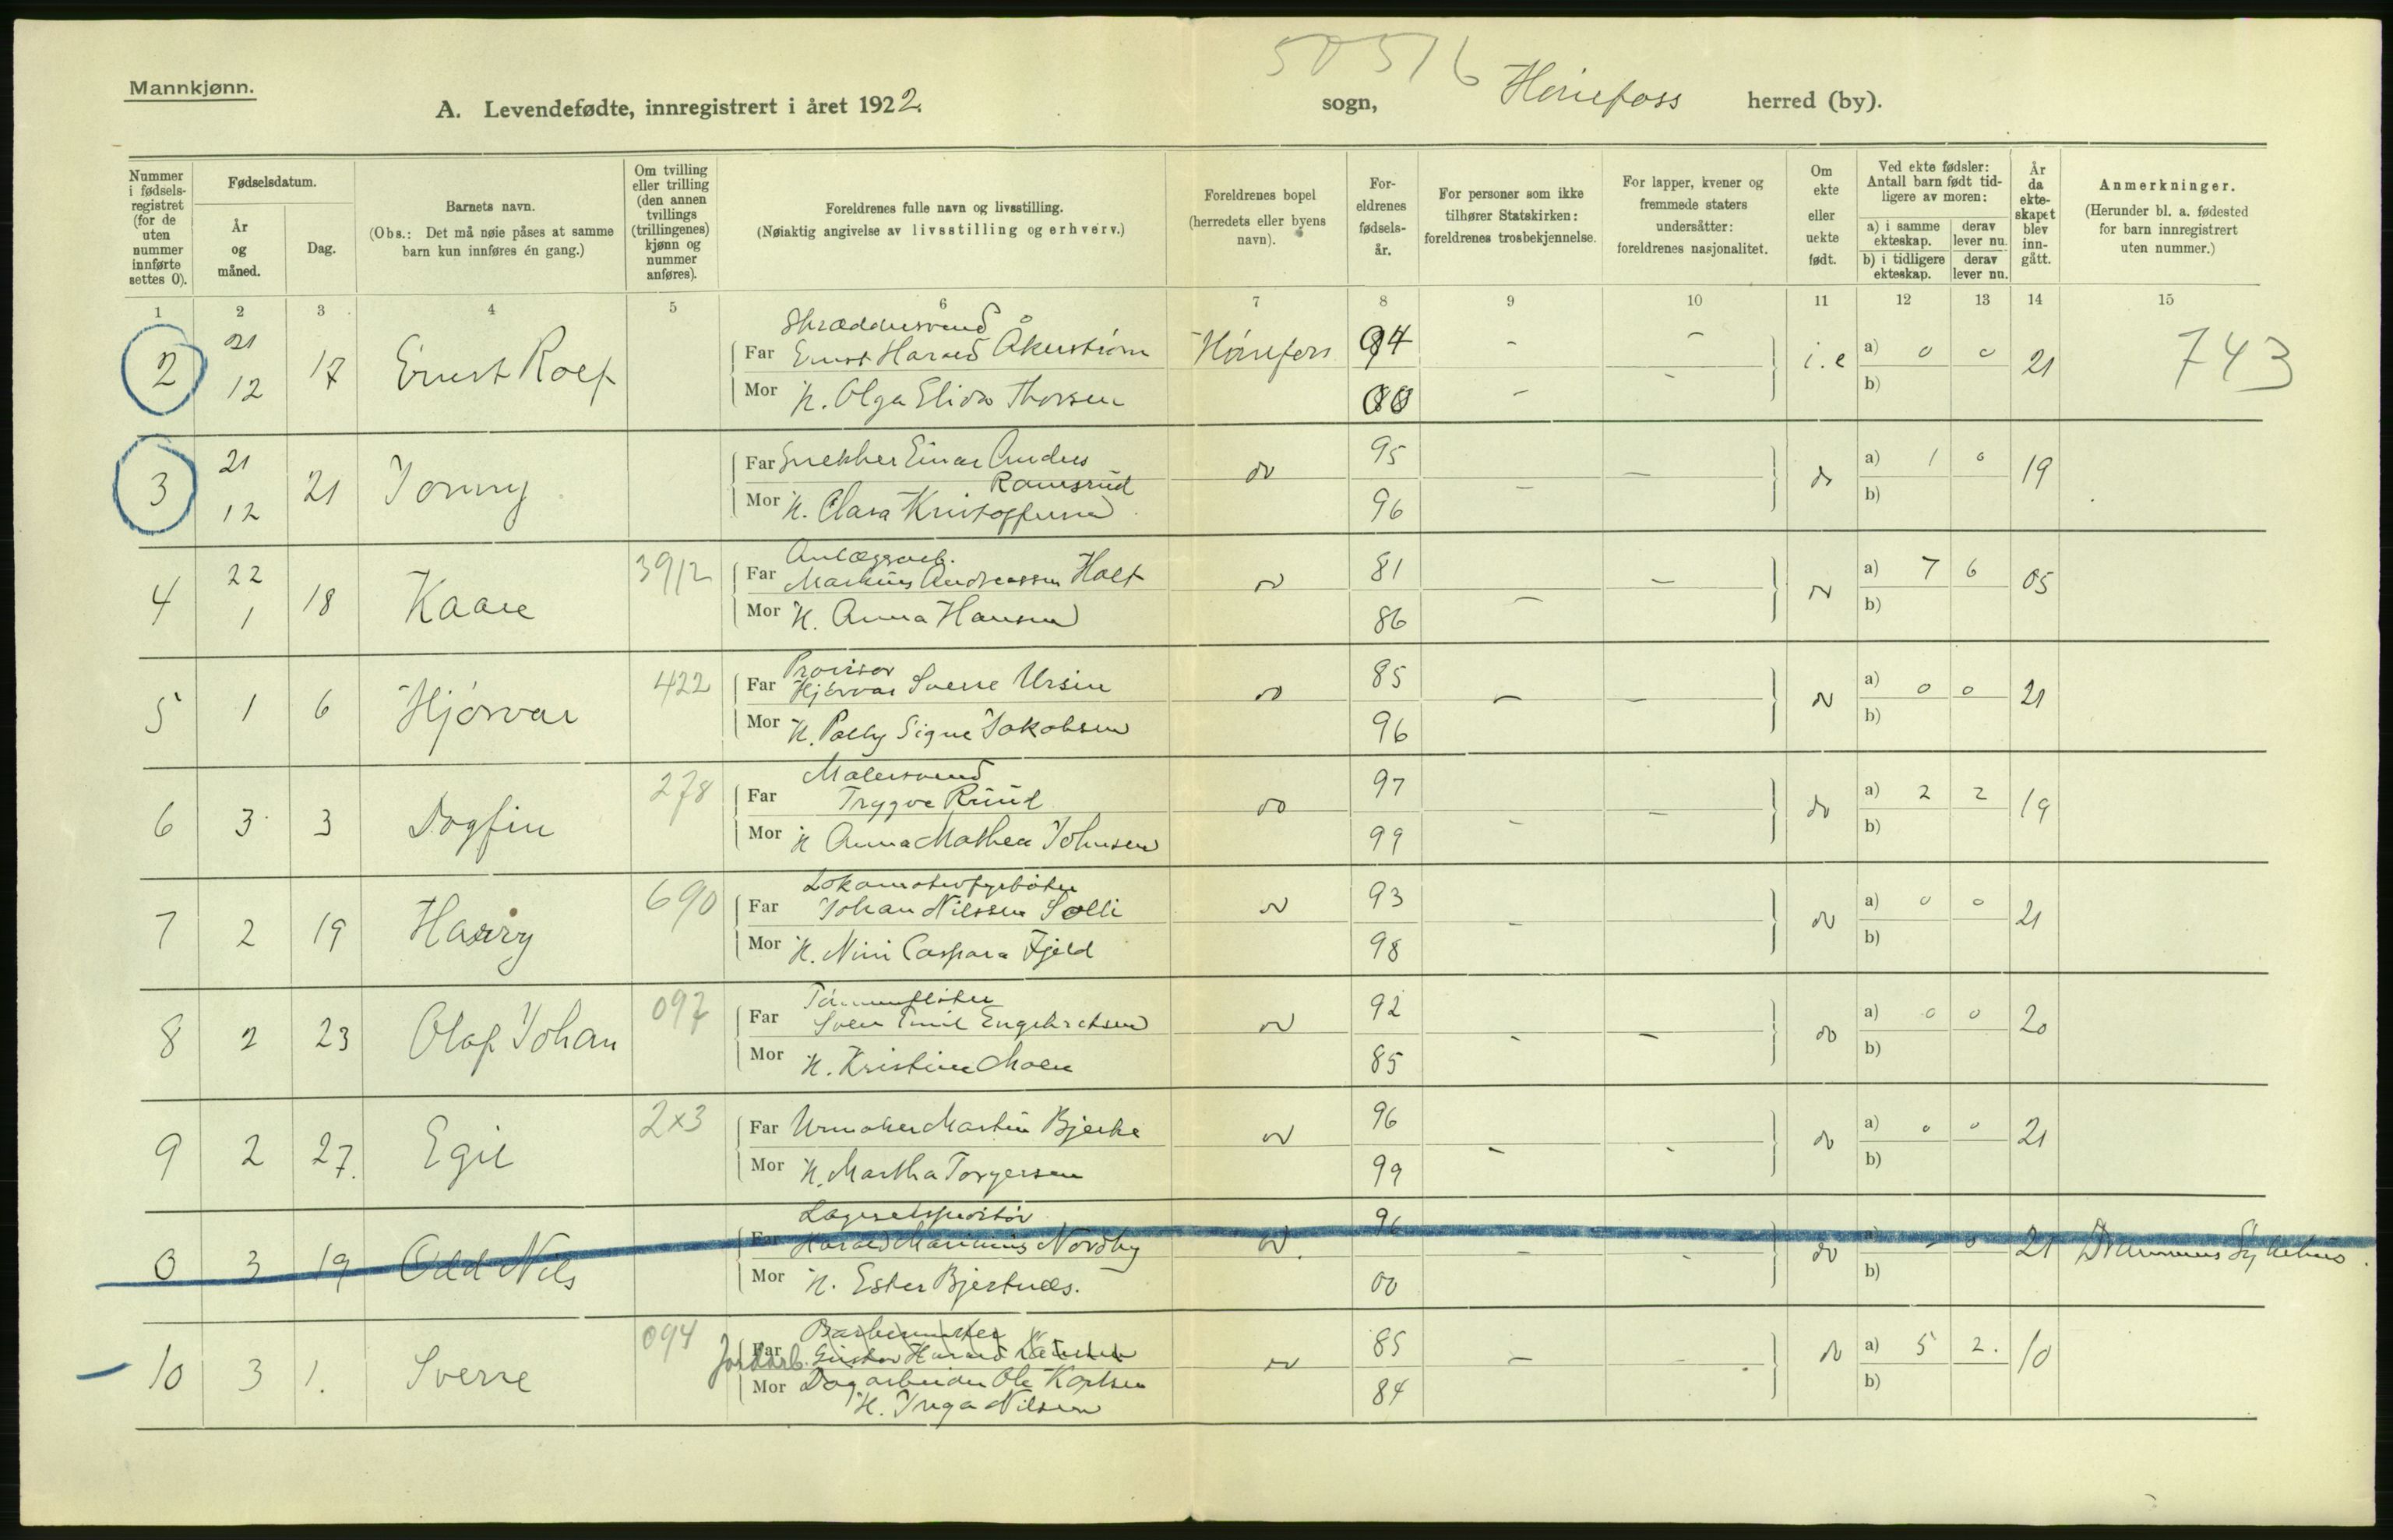 50516
Mannkjønn.
A. Levendefødte, innregistrert i året 1922.
sogn, Hønefoss herred (by).
Nummer i fødselsregistret (for de uten nummer innførte settes 0).
Fødselsdatum.
År og måned.
Dag.
Barnets navn.
(Obs.: Det må nøie påses at samme barn kun innføres én gang.)
Om tvilling eller trilling (den annen tvillings (trillingenes) kjønn og nummer anføres).
Foreldrenes fulle navn og livsstilling.
(Nøiaktig angivelse av livsstilling og erhverv.)
Foreldrenes bopel (herredets eller byens navn).
Foreldrenes fødselsår.
For personer som ikke tilhører Statskirken: foreldrenes trosbekjennelse.
For lapper, kvener og fremmede staters undersåtter: foreldrenes nasjonalitet.
Om ekte eller uekte født.
Ved ekte fødsler: Antall barn født tidligere av moren:
a) i samme ekteskap. derav lever nu.
b) i tidligere ekteskap. derav lever nu.
År da ekteskapet blev inngått.
Anmerkninger.
(Herunder bl. a. fødested for barn innregistrert uten nummer.)
1 2 3 4 5 6 7 8 9 10 11 12 13 14 15
Skræddersvend
2 21 12 17 Ernst Rolf Far Ernst Harald Åkerstrøm Hønefoss 94 - - i.e a) 0 0 21 743
Mor H. Olga Elida Thorsen - - b)
3 21 12 21 Jonny Far Snekker Einar Anders Ramsrud do 95 - - do a) 1 0 19
Mor H. Clara Kristoffersen 96 b)
Anlægsarb.
4 22 1 18 Kaare 3912 Far Markus Andreassen Holt do 81 - - do a) 7 6 05
Mor H. Anna Hansen 86 b)
Provisor
5 1 6 Hjørvar 422 Far Hjørvar Sverre Ursin do 85 - - do a) 0 0 21
Mor H. Polly Signe Jakobsen 96 b)
Malersvend
6 3 3 Dagfin 278 Far Trygve Ruud do 97 - - do a) 2 2 19
Mor H Anna Mathea Johnsen 99 b)
Lokomotivfyrbøter
7 2 19 Harry 690 Far Johan Nilssen Solli do 93 - - do a) 0 0 21
Mor H. Nini Caspara Fjeld 98 b)
Tømmerfløter
8 2 23 Olaf Johan 097 Far Sven Emil Engebretsen do 92 - - do a) 0 0 20
Mor H. Kristine Moen 85 b)
9 2 27. Egil 2x3 Far Urmaker Martin Bjerke do 96 - - do a) 0 0 21
Mor H. Martha Torgersen 99 b)
Lagerekspeditør
0 3 19 Odd Nils Far Harald Marinius Nordby do. 96 - - do a) - 0 21 Drammens Sykehus.
Mor H. Ester Bjertnæs. 00 b)
Barbermester
10 3 1. Sverre 094 Jordarb. Far Gustav Harald do 85 - - do a) 5 2. 10
Mor Dagarbeider Ole Karlsen 84 b)
H. Inga Nilsen